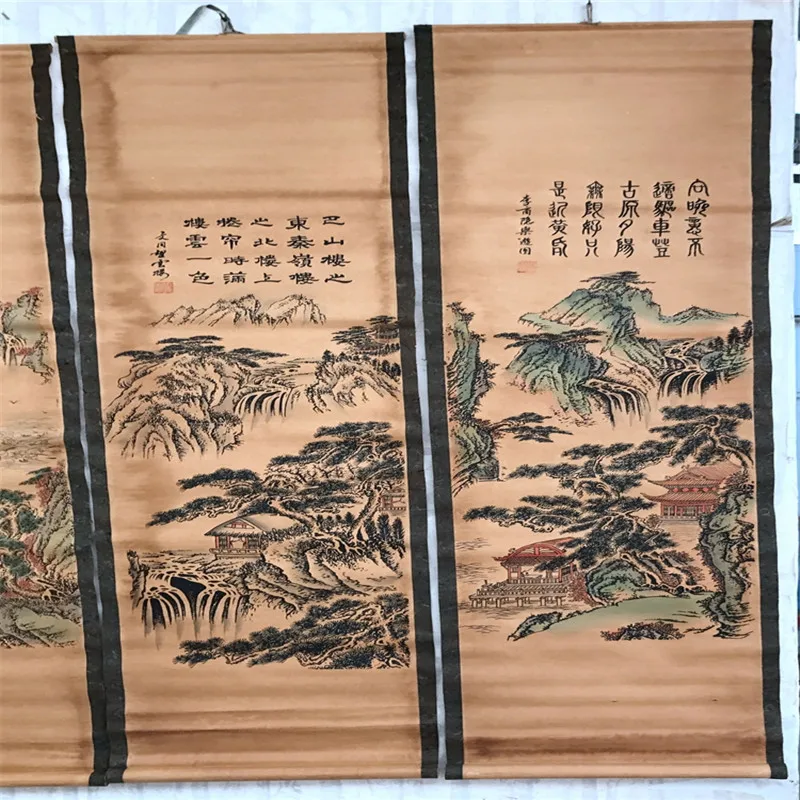 向晚意不
適驅車登
古原夕陽
無限好只
是近黃昏
李商隱樂遊園
巴山樓之
東秦嶺樓
之北樓上
捲帘時滿
樓雲一色
文同望雲樓